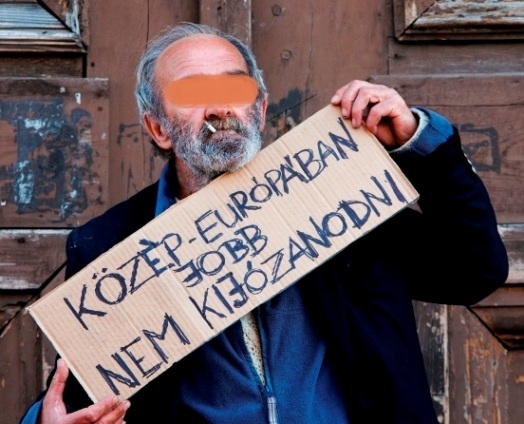 KÖZÉP-EURÓPÁBAN
JOBB
NEM KIJÓZANODNI